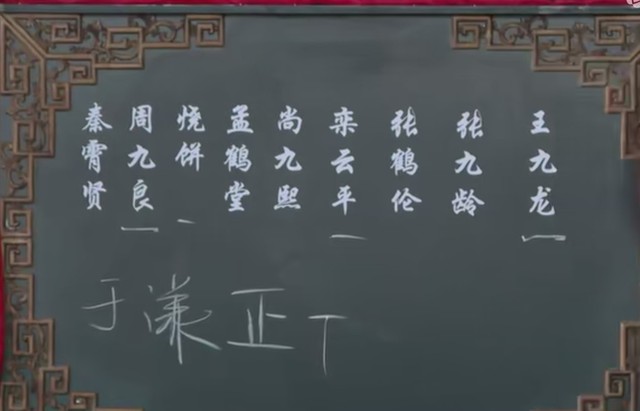 王九龙 一
张九龄
张鹤伦
栾云平 一
尚九熙
孟鹤堂
烧饼 一
周九良 一
秦霄贤
于谦 正 丅